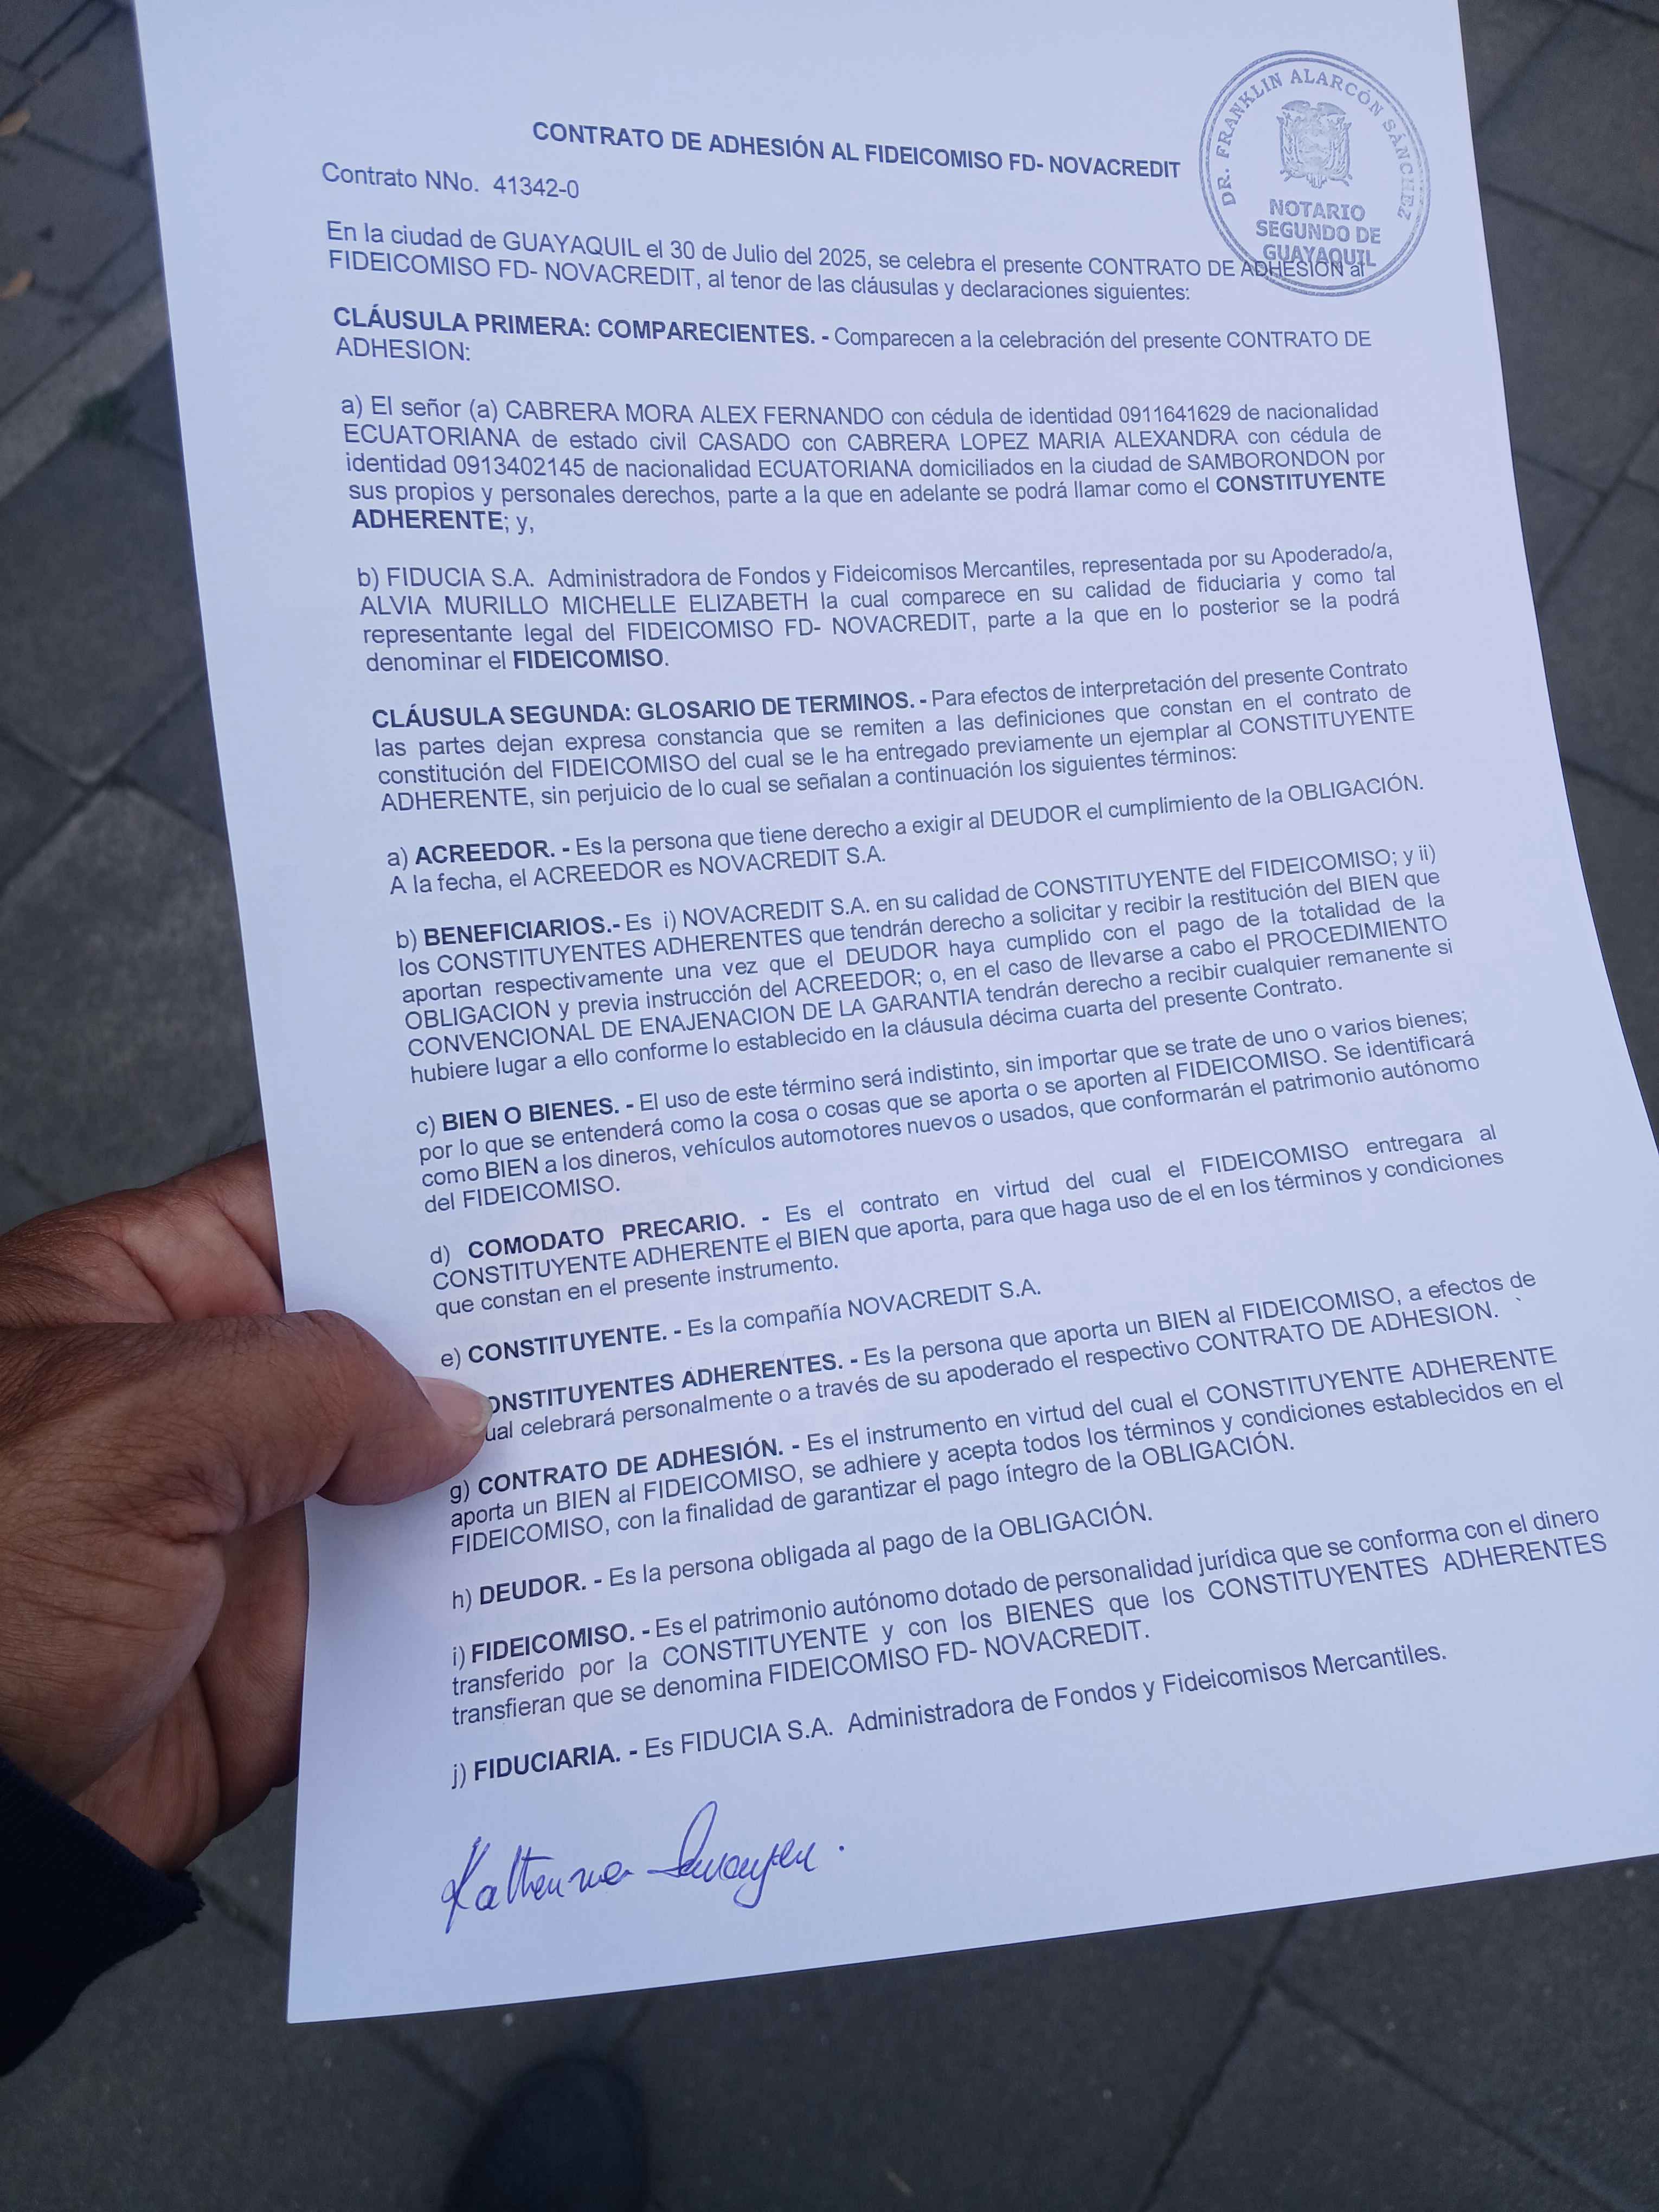 CONTRATO DE ADHESIÓN AL FIDEICOMISO FD- NOVACREDIT
DR. FRANKLIN ALARCÓN SÁNCHEZ
NOTARIO
SEGUNDO DE
GUAYAQUIL
Contrato NNo. 41342-0
En la ciudad de GUAYAQUIL el 30 de Julio del 2025, se celebra el presente CONTRATO DE ADHESIÓN al
FIDEICOMISO FD- NOVACREDIT, al tenor de las cláusulas y declaraciones siguientes:
CLÁUSULA PRIMERA: COMPARECIENTES. - Comparecen a la celebración del presente CONTRATO DE
ADHESION:
a) El señor (a) CABRERA MORA ALEX FERNANDO con cédula de identidad 0911641629 de nacionalidad
ECUATORIANA de estado civil CASADO con CABRERA LOPEZ MARIA ALEXANDRA con cédula de
identidad 0913402145 de nacionalidad ECUATORIANA domiciliados en la ciudad de SAMBORONDON por
sus propios y personales derechos, parte a la que en adelante se podrá llamar como el CONSTITUYENTE
ADHERENTE; y,
b) FIDUCIA S.A. Administradora de Fondos y Fideicomisos Mercantiles, representada por su Apoderado/a,
ALVIA MURILLO MICHELLE ELIZABETH la cual comparece en su calidad de fiduciaria y como tal
representante legal del FIDEICOMISO FD- NOVACREDIT, parte a la que en lo posterior se la podrá
denominar el FIDEICOMISO.
CLÁUSULA SEGUNDA: GLOSARIO DE TERMINOS. - Para efectos de interpretación del presente Contrato
las partes dejan expresa constancia que se remiten a las definiciones que constan en el contrato de
constitución del FIDEICOMISO del cual se le ha entregado previamente un ejemplar al CONSTITUYENTE
ADHERENTE, sin perjuicio de lo cual se señalan a continuación los siguientes términos:
a) ACREEDOR. - Es la persona que tiene derecho a exigir al DEUDOR el cumplimiento de la OBLIGACIÓN.
A la fecha, el ACREEDOR es NOVACREDIT S.A.
b) BENEFICIARIOS.- Es i) NOVACREDIT S.A. en su calidad de CONSTITUYENTE del FIDEICOMISO; y ii)
los CONSTITUYENTES ADHERENTES que tendrán derecho a solicitar y recibir la restitución del BIEN que
aportan respectivamente una vez que el DEUDOR haya cumplido con el pago de la totalidad de la
OBLIGACION y previa instrucción del ACREEDOR; o, en el caso de llevarse a cabo el PROCEDIMIENTO
CONVENCIONAL DE ENAJENACION DE LA GARANTIA tendrán derecho a recibir cualquier remanente si
hubiere lugar a ello conforme lo establecido en la cláusula décima cuarta del presente Contrato.
c) BIEN O BIENES. - El uso de este término será indistinto, sin importar que se trate de uno o varios bienes;
por lo que se entenderá como la cosa o cosas que se aporta o se aporten al FIDEICOMISO. Se identificará
como BIEN a los dineros, vehículos automotores nuevos o usados, que conformarán el patrimonio autónomo
del FIDEICOMISO.
d) COMODATO PRECARIO. - Es el contrato en virtud del cual el FIDEICOMISO entregara al
CONSTITUYENTE ADHERENTE el BIEN que aporta, para que haga uso de el en los términos y condiciones
que constan en el presente instrumento.
e) CONSTITUYENTE. - Es la compañía NOVACREDIT S.A.
ONSTITUYENTES ADHERENTES. - Es la persona que aporta un BIEN al FIDEICOMISO, a efectos de
ual celebrará personalmente o a través de su apoderado el respectivo CONTRATO DE ADHESION.
g) CONTRATO DE ADHESIÓN. - Es el instrumento en virtud del cual el CONSTITUYENTE ADHERENTE
aporta un BIEN al FIDEICOMISO, se adhiere y acepta todos los términos y condiciones establecidos en el
FIDEICOMISO, con la finalidad de garantizar el pago íntegro de la OBLIGACIÓN.
h) DEUDOR. - Es la persona obligada al pago de la OBLIGACIÓN.
i) FIDEICOMISO. - Es el patrimonio autónomo dotado de personalidad jurídica que se conforma con el dinero
transferido por la CONSTITUYENTE y con los BIENES que los CONSTITUYENTES ADHERENTES
transfieran que se denomina FIDEICOMISO FD- NOVACREDIT.
j) FIDUCIARIA. - Es FIDUCIA S.A. Administradora de Fondos y Fideicomisos Mercantiles.